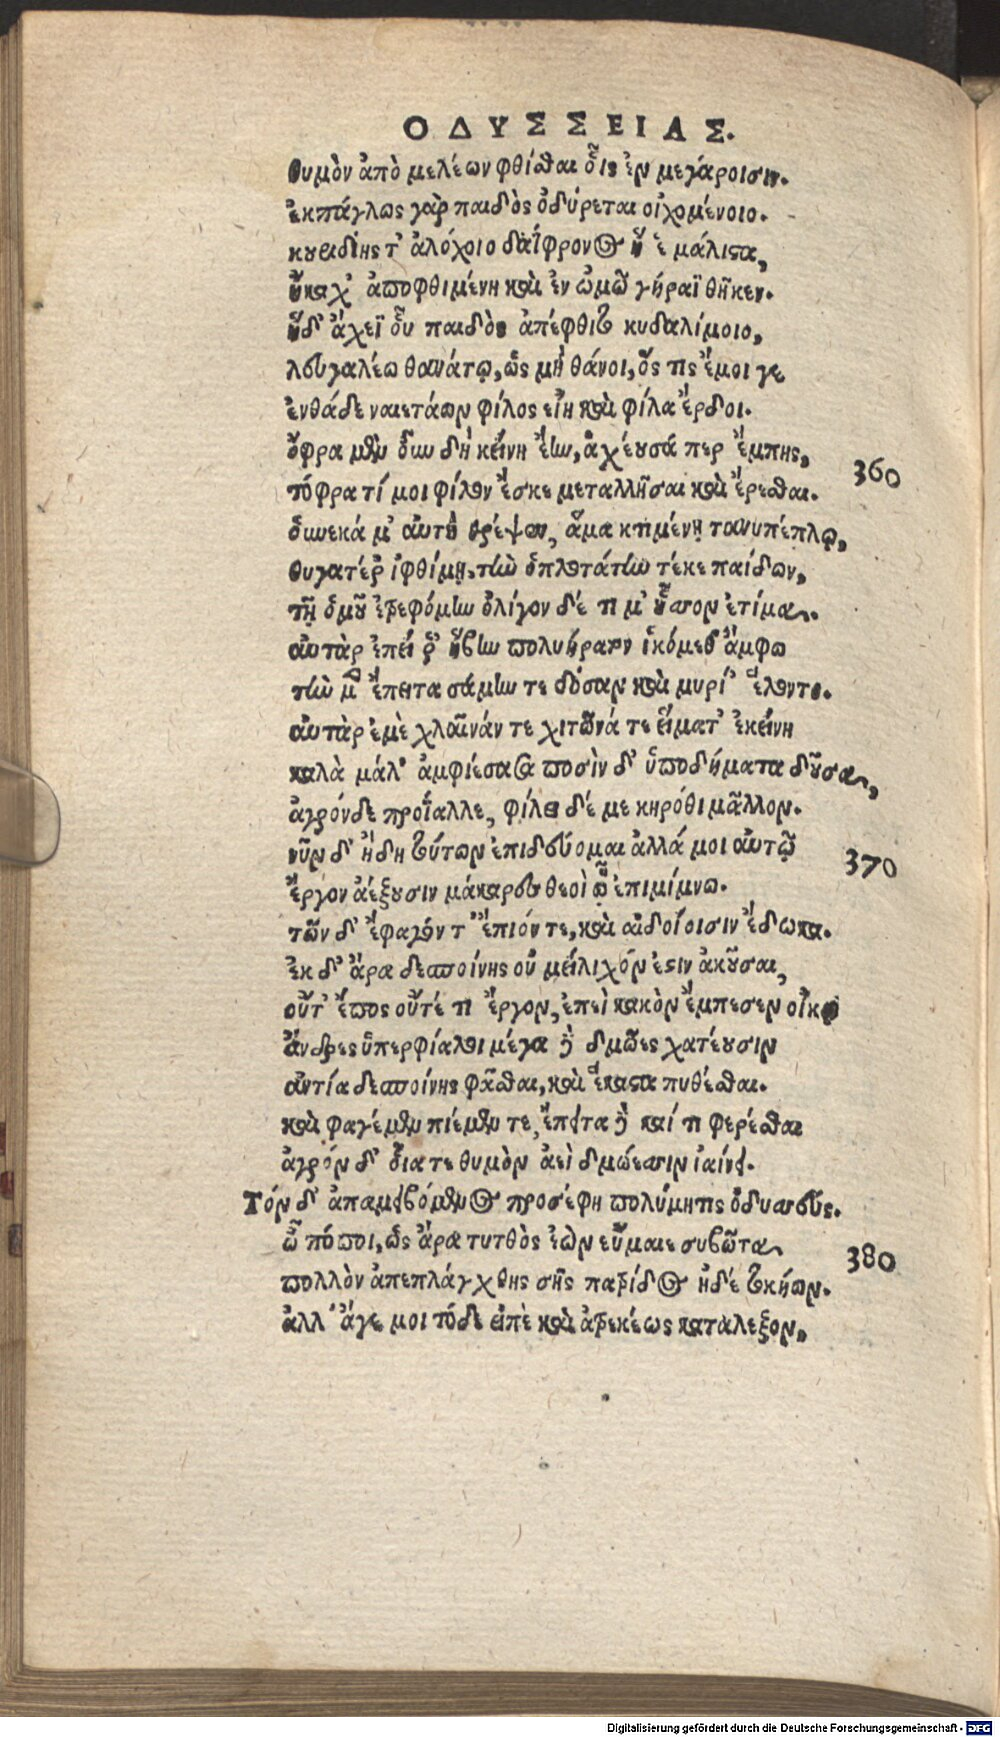 ΟΔΥΣΣΕΙΑΣ.
θυμὸν ἀπὸ μελέων φθίσθαι οἷς ἐν μεγάροισιν.
ἐκπάγλως γὰρ παιδὸς ὀδύρεται οἰχομένοιο.
κουριδίης τ' ἀλόχοιο δαΐφρονος ἥ ἑ μάλιστα,
ἤκαχ' ἀποφθιμένη καὶ ἐν ὠμῷ γήραϊ θῆκεν.
ἡ δ' ἄχεϊ οὗ παιδὸς ἀπέφθιτο κυδαλίμοιο,
λευγαλέῳ θανάτῳ, ὡς μὴ θάνοι, ὅς τις ἔμοι γε
ἐνθάδε ναιετάων φίλος εἴη καὶ φίλα ἔρδοι.
ὄφρα μὲν οὖν δὴ κείνη ἔην, ἀχέουσά περ ἔμπης,
360
τόφρα τί μοι φίλον ἔσκε μεταλλῆσαι καὶ ἔρεσθαι.
οὕνεκά μ' αὐτὴ θρέψεν, ἅμα κτιμένῃ τανυπέπλῳ,
θυγατέρ' ἰφθίμῃ, τὴν ὁπλοτάτην τέκε παίδων,
τῇ ὁμοῦ ἐτρεφόμην ὀλίγον δέ τι μ' ἧσσον ἐτίμα.
αὐτὰρ ἐπεί ῥ' ἥβην πολυήρατον ἱκόμεθ' ἄμφω
τὴν μὲν ἔπειτα σάμην τε δόσαν καὶ μυρί' ἕλοντο.
αὐτὰρ ἐμὲ χλαῖνάν τε χιτῶνά τε εἵματ' ἐκείνη
καλὰ μάλ' ἀμφιέσασα ποσὶν δ' ὑποδήματα δοῦσα,
ἀγρόνδε προΐαλλε, φίλει δέ με κηρόθι μᾶλλον.
νῦν δ' ἤδη τούτων ἐπιδεύομαι ἀλλά μοι αὐτῷ
370
ἔργον ἀέξουσιν μάκαρες θεοὶ ᾧ ἐπιμίμνω.
τῶν δ' ἔφαγόν τ' ἔπιόν τε, καὶ αἰδοίοισιν ἔδωκα.
ἐκ δ' ἄρα δεσποίνης οὐ μείλιχόν ἐστιν ἀκοῦσαι,
οὔτ' ἔπος οὔτέ τι ἔργον, ἐπεὶ κακὸν ἔμπεσεν οἴκῳ
ἄνδρες ὑπερφίαλοι μέγα δὲ δμῶες χατέουσιν
ἀντία δεσποίνης φᾶσθαι, καὶ ἕκαστα πυθέσθαι.
καὶ φαγέμεν πιέμεν τε, ἔπειτα δὲ καί τι φέρεσθαι
ἀγρόν δ' οἷα τε θυμὸν ἀεὶ δμώεσσιν ἰαίνει.
Τόν δ' ἀπαμειβόμενος προσέφη πολύμητις ὀδυσσεύς.
ὦ πόποι, ὡς ἄρα τυτθὸς ἐὼν εὔμαιε συβῶτα
380
πολλὸν ἀπεπλάγχθης σῆς πατρίδος ἠδὲ τοκήων.
ἀλλ' ἄγε μοι τόδε εἰπὲ καὶ ἀτρεκέως κατάλεξον,
Digitalisierung gefördert durch die Deutsche Forschungsgemeinschaft - DFG